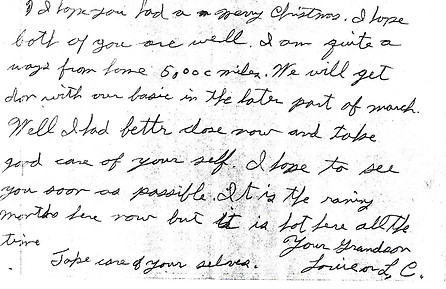 I hope you had a merry Christmas. I hope
both of you are well. I am quite a
ways from home 5,000 miles. We will get
don with our basic in the later part of march.
Well I had bettr close now and take
good care of your self. I hope to see
you soon as possible. It is the rainy
months here now but it is hot here all the
time
Your Grandson
Take care of your selves. Louie or L. C.